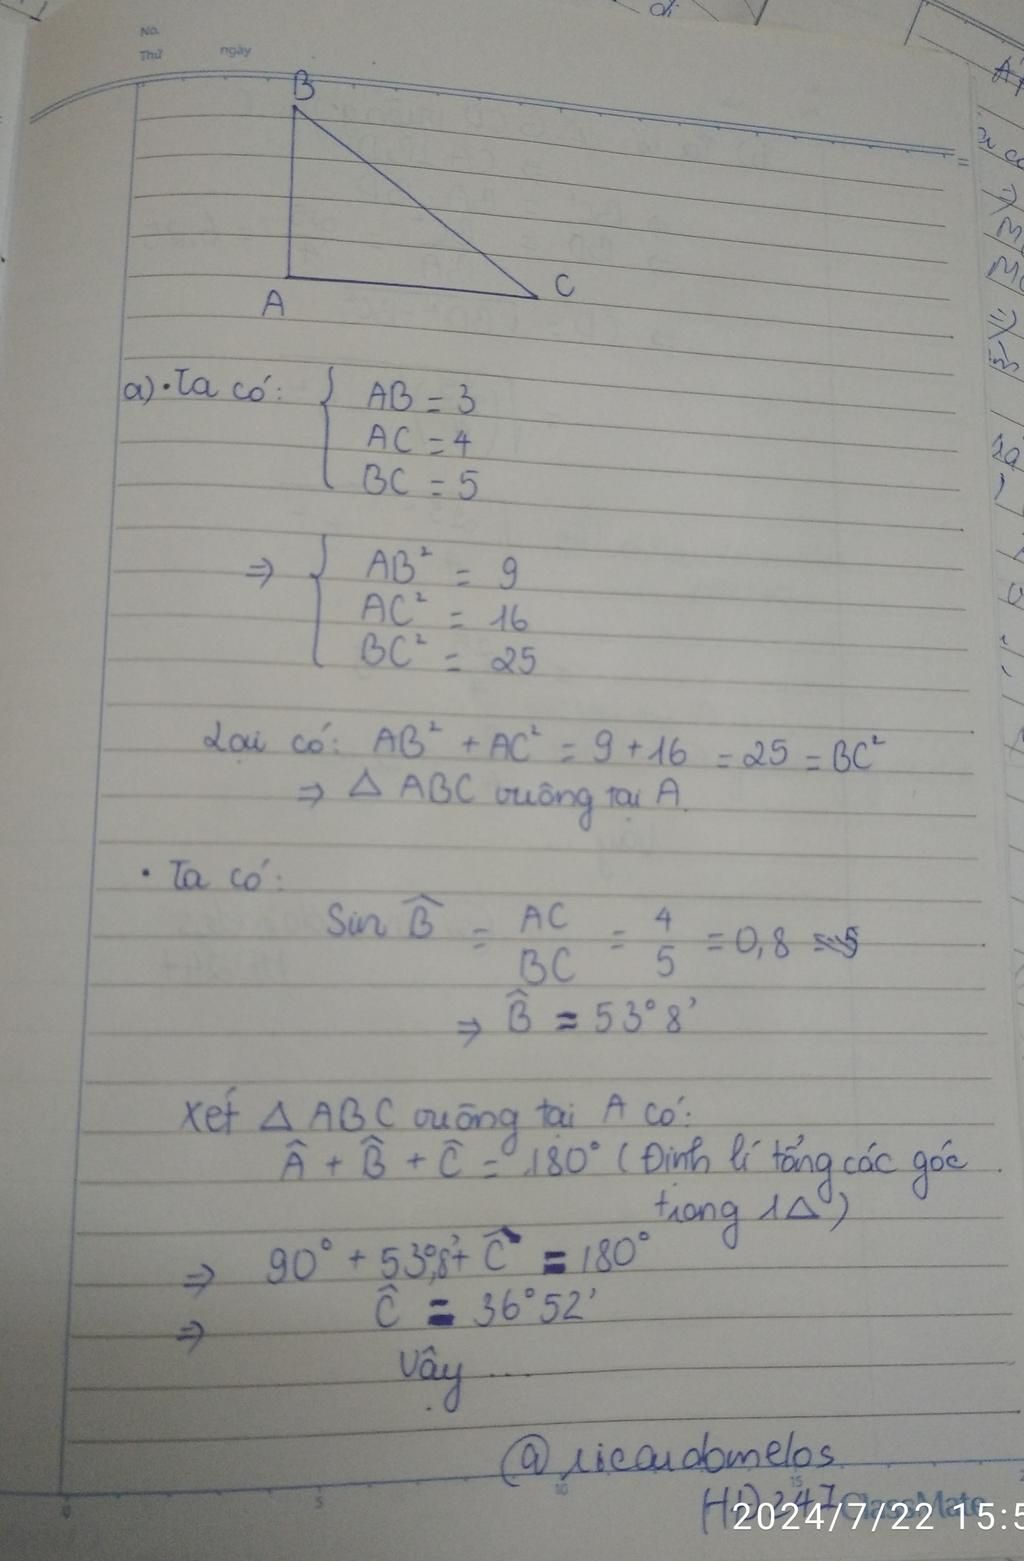 No.
Thứ ngày
B
A
C
a) • Ta có: { AB = 3
AC = 4
BC = 5
⇒ { AB² = 9
AC² = 16
BC² = 25
Lại có: AB² + AC² = 9 + 16 = 25 = BC²
⇒ Δ ABC vuông tại A.
• Ta có:
Sin B̂ = AC/BC = 4/5 = 0,8
⇒ B̂ = 53°8'
Xét Δ ABC vuông tại A có:
Â + B̂ + Ĉ = 180° (Định lí tổng các góc
trong 1Δ)
⇒ 90° + 53°8' + Ĉ = 180°
⇒ Ĉ = 36°52'
Vậy ...
@ricardomelos
0 5 10 15
HD247 ClassMate
2024/7/22 15:5